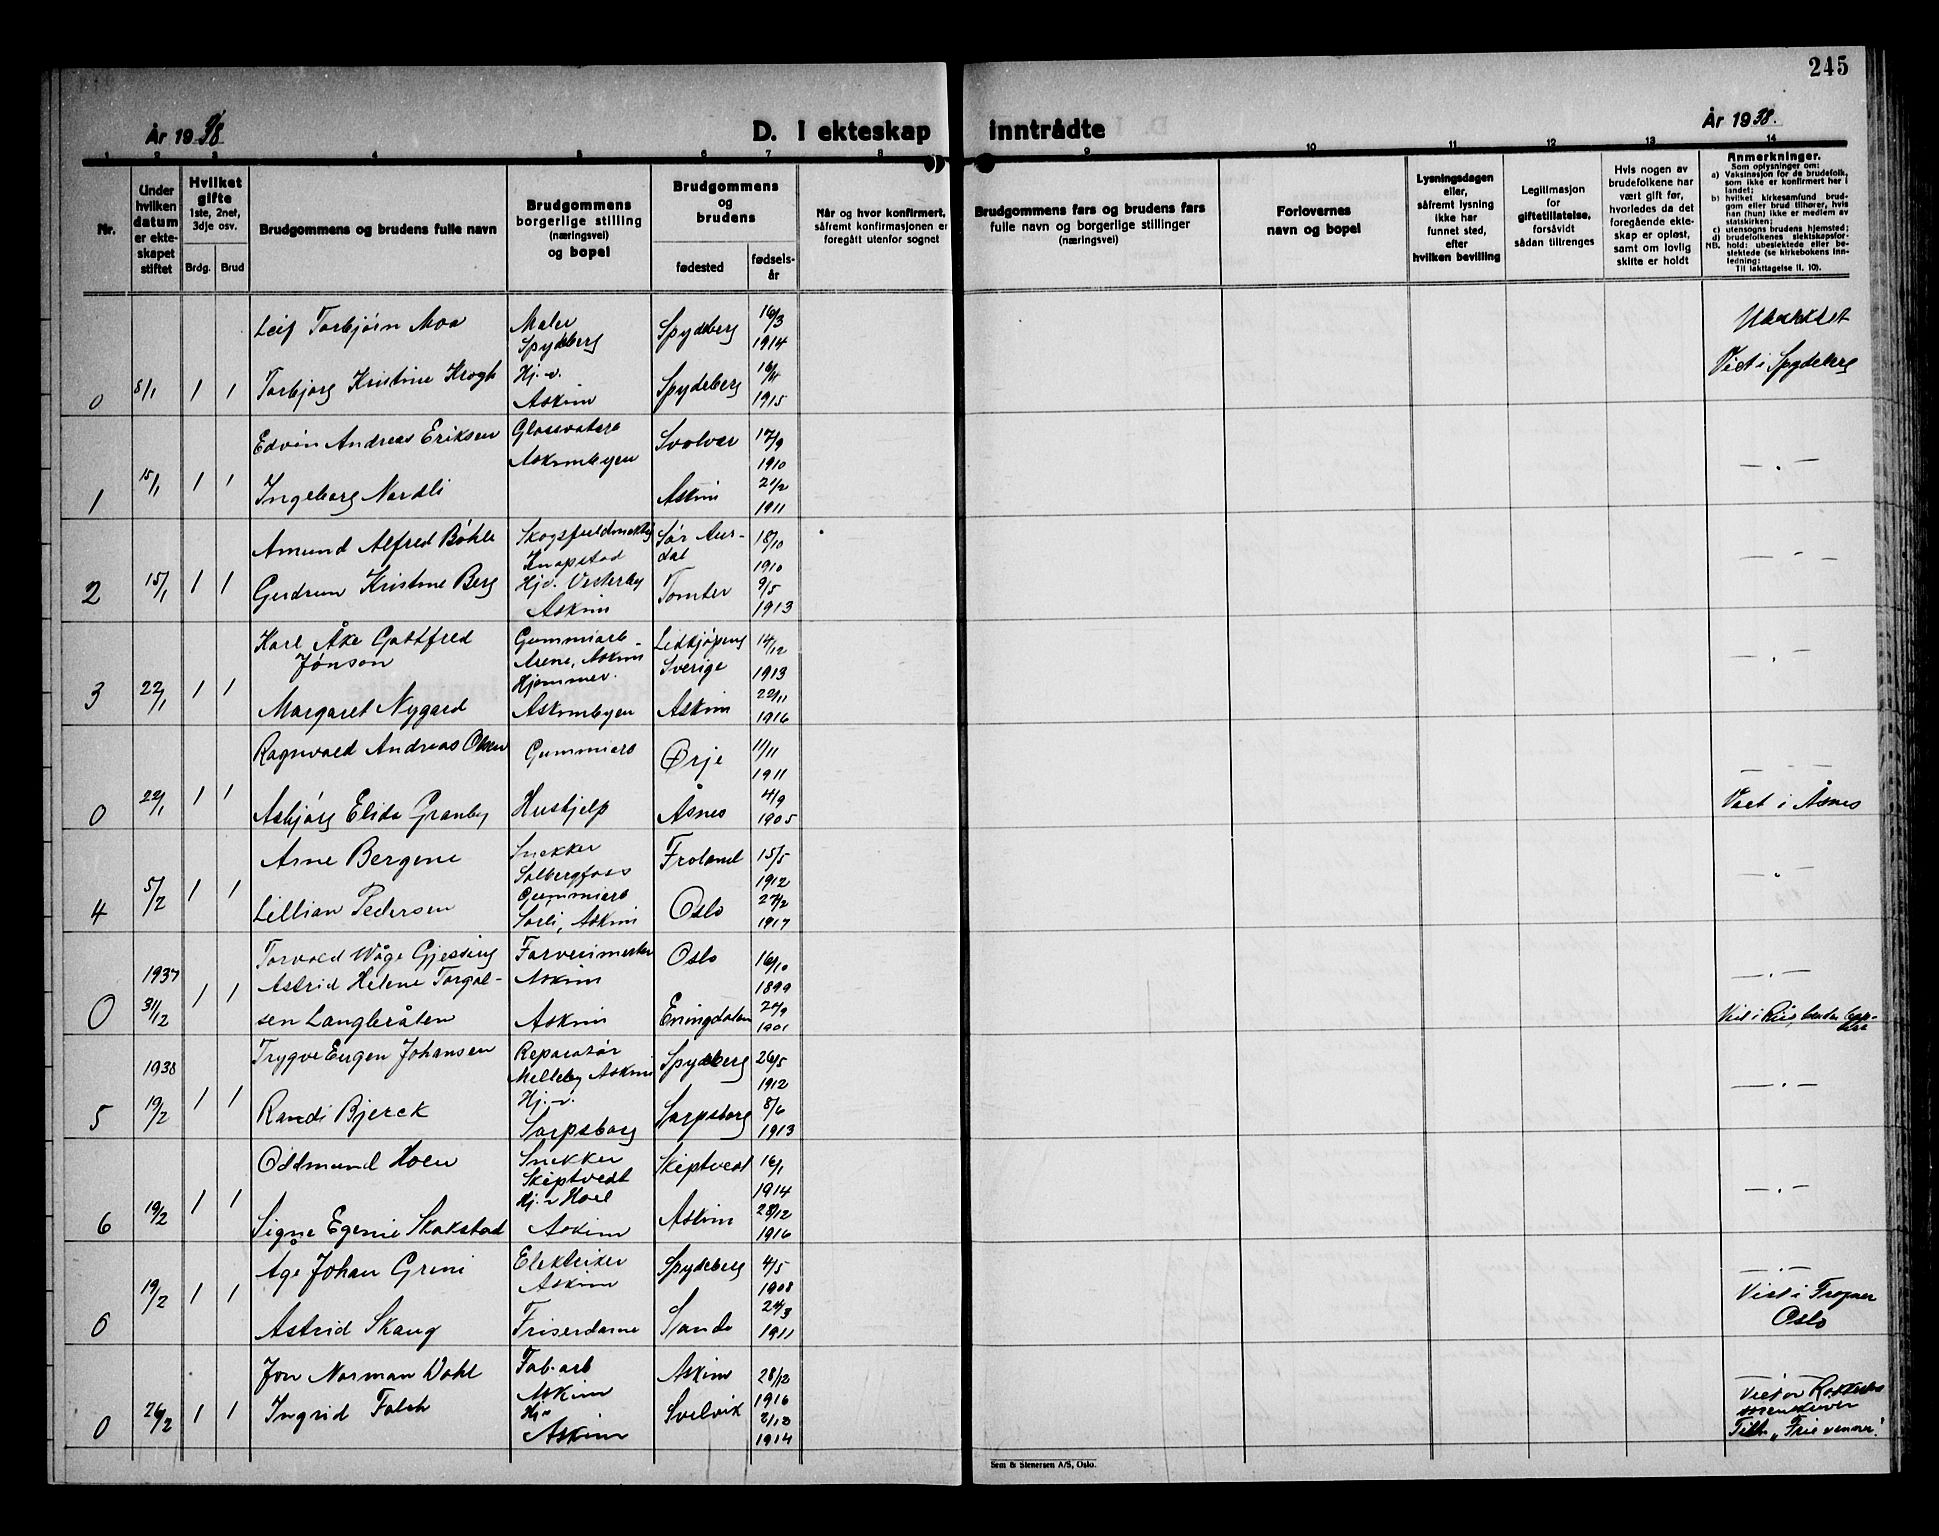 245
År 1938
D. I ekteskap inntrådte
År 1938.
1 2 3 4 5 6 7 8 9 10 11 12 13 14
Nr.
Under hvilken datum er ekteskapet stiftet
Hvilket gifte
1ste, 2net, 3dje osv.
Brdg. Brud
Brudgommens og brudens fulle navn
Brudgommens borgerlige stilling (næringsvei) og bopel
Brudgommens og brudens
fødested
fødselsår
Når og hvor konfirmert, såfremt konfirmasjonen er foregått utenfor sognet
Brudgommens fars og brudens fars fulle navn og borgerlige stillinger (næringsvei)
Forlovernes navn og bopel
Lysningsdagen eller, såfremt lysning ikke har funnet sted, efter hvilken bevilling
Legitimasjon for giftetillatelse, forsåvidt sådan tiltrenges
Hvis nogen av brudefolkene har vært gift før, hvorledes da det foregående ekteskap er opløst, samt om lovlig skifte er holdt
Anmerkninger.
Som oplysninger om:
a) Vaksinasjon for de brudefolk, som ikke er konfirmert her i landet;
b) hvilket kirkesamfund brudgom eller brud tilhører, hvis han (hun) ikke er medlem av statskirken;
c) utensogns brudens hjemsted;
d) brudefolkenes slektskapsforhold: ubeslektede eller beslektede (se kirkebokens innledning:
NB. Til iakttagelse II. 10).
Leif Torbjørn Moa Maler Spydeberg Spydeberg 16/3 1914
0 8/1 1 1 Torbjørg Kristine Krogh Hj. v. Askim Spydeberg 16/11 1915 Viet i Spydeberg
Edvin Andreas Eriksen Askimbyen Svolvær 17/9 1910 — " —
1 15/1 1 1 Ingeborg Nordli Askim 21/2 1911
Amund Alfred Bøhle Knapstad Sør Aurdal 18/10 1910 — " —
2 15/1 1 1 Gudrun Kristine Berg Hjv. Vesterby Askim Tomter 9/5 1913
Karl Åke Gottfred Jønson Gummiarb Arene, Askim Lidkjøping Sverige 14/12 1913 — " —
3 22/1 1 1 Margaret Nygard Hjemmev. Askimbyen Askim 22/11 1916
Ragnvald Andreas Olsen Gummiarb Ørje 11/11 1911 — " —
0 22/1 1 1 Asbjørg Elida Granby Hushjelp Åsnes 4/9 1905 Viet i Åsnes
Arne Bergene Snekker Solbergfoss Froland 15/5 1912 "
4 5/2 1 1 Lillian Pedersen Gummiarb Sørli, Askim Oslo 27/2 1917
Torvald Wåge Gjessing Farverimester Askim Oslo 16/10 1899 — " —
0 1937 31/12 1 1 Astrid Helene Torgalsen Langleråten Askim Enningdalen 20/9 1901 Viet i
Trygve Eugen Johansen Reparatør Melleby Askim Spydeberg 26/5 1912 — " —
5 1938 19/2 1 1 Randi Bjerck Hj. v. Sarpsborg Sarpsborg 8/6 1913
Oddmund Hoen Snekker Skiptvedt Skiptvedt 16/1 1914 — " —
6 19/2 1 1 Signe Egenie Skakstad Hj. v Hoel Askim Askim 28/12 1916
Åge Johan Greni Elektriker Askim Spydeberg 4/5 1908 — " —
0 19/2 1 1 Astrid Skaug Friserdame Sande 24/3 1911 Viet i Frogner Oslo
Jon Norman Dahl Fab. arb Askim Askim 28/12 1916
0 26/2 1 1 Ingrid Falch Hjv Askim Svelvik 2/12 1914 Tilh. „Frie venner".
Sem & Stenersen A/S, Oslo.